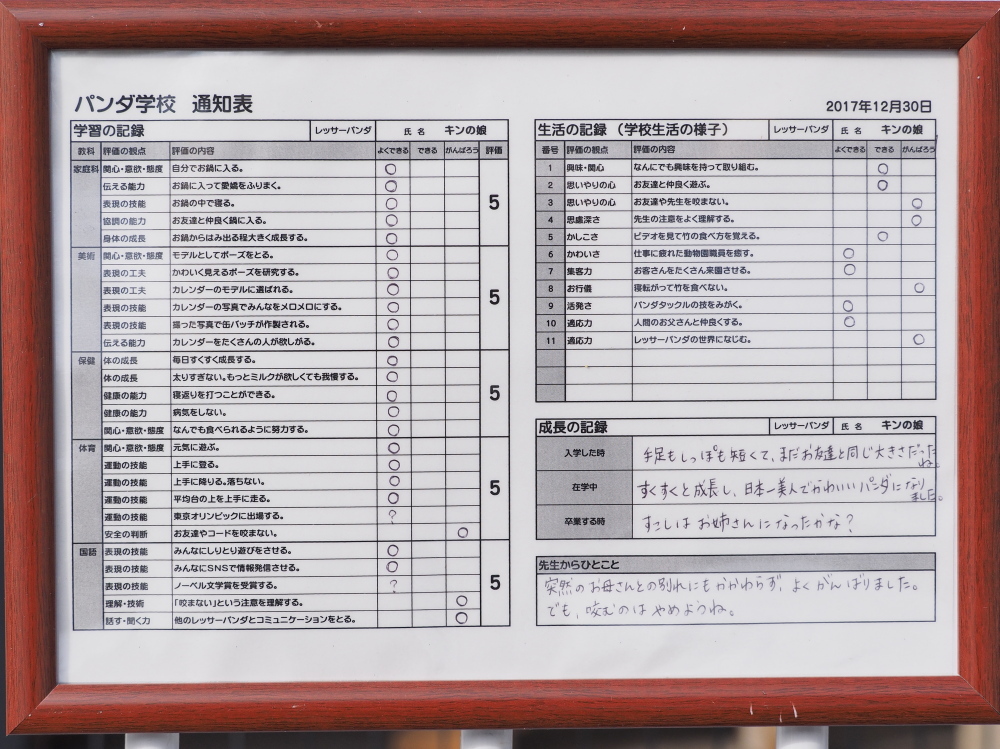 パンダ学校 通知表
学習の記録 レッサーパンダ 氏 名 キンの娘
教科 評価の観点 評価の内容 よくできる できる がんばろう 評価
家庭科 関心・意欲・態度 自分でお鍋に入る。 ○
伝える能力 お鍋に入って愛嬌をふりまく。 ○
表現の技能 お鍋の中で寝る。 ○ 5
協調の能力 お友達と仲良く鍋に入る。 ○
身体の成長 お鍋からはみ出る程大きく成長する。 ○
美術 関心・意欲・態度 モデルとしてポーズをとる。 ○
表現の工夫 かわいく見えるポーズを研究する。 ○
表現の工夫 カレンダーのモデルに選ばれる。 ○ 5
表現の技能 カレンダーの写真でみんなをメロメロにする。 ○
表現の技能 撮った写真で缶バッチが作製される。 ○
伝える能力 カレンダーをたくさんの人が欲しがる。 ○
保健 体の成長 毎日すくすく成長する。 ○
体の成長 太りすぎない。もっとミルクが欲しくても我慢する。 ○
健康の能力 寝返りを打つことができる。 ○ 5
健康の能力 病気をしない。 ○
関心・意欲・態度 なんでも食べられるように努力する。 ○
体育 関心・意欲・態度 元気に遊ぶ。 ○
運動の技能 上手に登る。 ○
運動の技能 上手に降りる。落ちない。 ○ 5
運動の技能 平均台の上を上手に走る。 ○
運動の技能 東京オリンピックに出場する。 ?
安全の判断 お友達やコードを咬まない。 ○
国語 表現の技能 みんなにしりとり遊びをさせる。 ○
表現の技能 みんなにSNSで情報発信させる。 ○
表現の技能 ノーベル文学賞を受賞する。 ? 5
理解・技術 「咬まない」という注意を理解する。 ○
話す・聞く力 他のレッサーパンダとコミュニケーションをとる。 ○
2017年12月30日
生活の記録（学校生活の様子） レッサーパンダ 氏 名 キンの娘
番号 評価の観点 評価の内容 よくできる できる がんばろう
1 興味・関心 なんにでも興味を持って取り組む。 ○
2 思いやりの心 お友達と仲良く遊ぶ。 ○
3 思いやりの心 お友達や先生を咬まない。 ○
4 思慮深さ 先生の注意をよく理解する。 ○
5 かしこさ ビデオを見て竹の食べ方を覚える。 ○
6 かわいさ 仕事に疲れた動物園職員を癒す。 ○
7 集客力 お客さんをたくさん来園させる。 ○
8 お行儀 寝転がって竹を食べない。 ○
9 活発さ パンダタックルの技をみがく。 ○
10 適応力 人間のお父さんと仲良くする。 ○
11 適応力 レッサーパンダの世界になじむ。 ○
成長の記録 レッサーパンダ 氏 名 キンの娘
入学した時 手足もしっぽも短くて、まだお友達と同じ大きさだった
ね。
在学中 すくすくと成長し、日本一美人でかわいいパンダになり
ました。
卒業する時 すこしは お姉さんに なったかな？
先生からひとこと
突然のお母さんとの別れにもかかわらず、よくがんばりました。
でも、咬むのは やめようね。